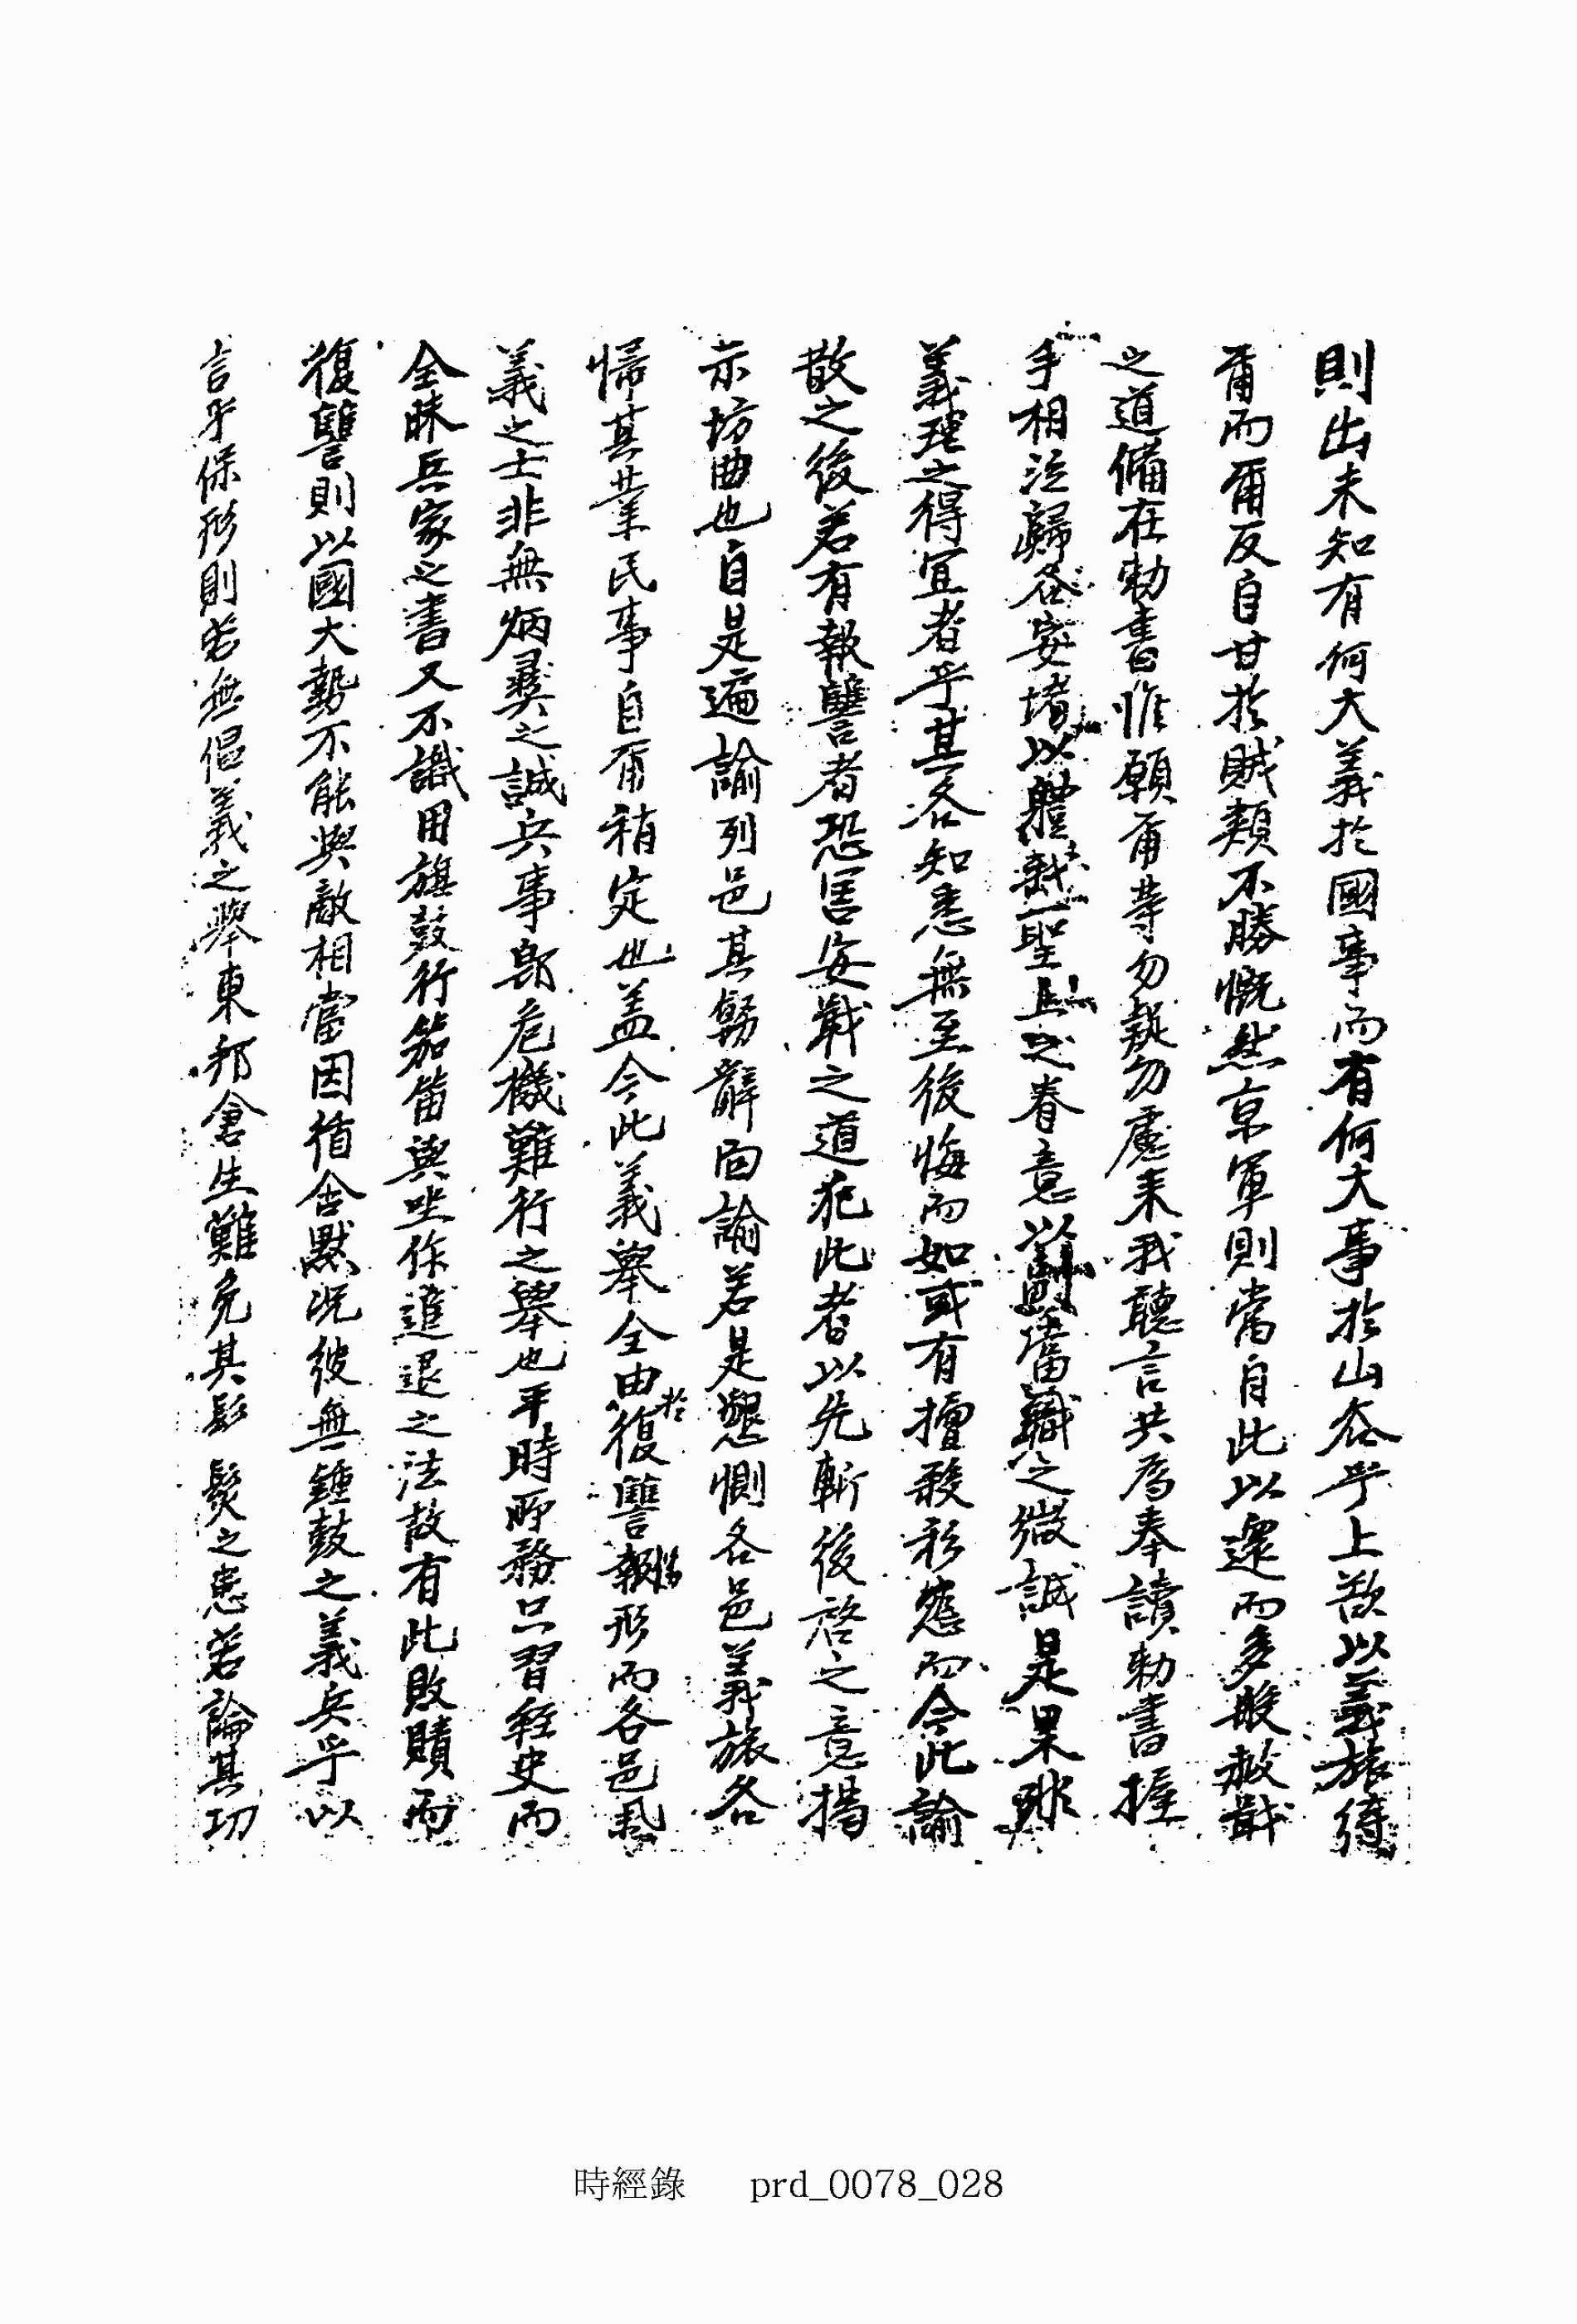 則出未知有何大義於國事而有何大事於山谷乎上欲以義旅待
爾而爾反自甘於賊類不勝慨然京軍則當自此以還而多般赦戢
之道備在勅書惟願爾等勿疑勿慮來我聽言共爲奉讀勅書握
手相泣歸各安堵以體我聖上之眷意以副當職之微誠是果非
義理之得宜者乎其各知悉無至後悔而如或有擅殺私怨而今此諭
散之後若有報讐者恐害安戢之道犯此者以先斬後啓之意揭
示坊曲也自是遍諭列邑其辭面諭若是懇惻各邑義旅各
帰其業民事自爾稍定也盖今此義擧全由於復讐報形而各邑
義之士非無炳彛之誠兵事郞危機難行之擧也平時所務只習經史而
全昧兵家之書又不識用旗鼓行笳笛與坐作進退之法故有此敗䝴而
復讐則以國大勢不能與敵相當因循含默况彼無鍾鼓之義兵乎以
言乎保形則若無倡義之擧東邦倉生難免其髟髡之患若論其功
時經錄 prd_0078_028